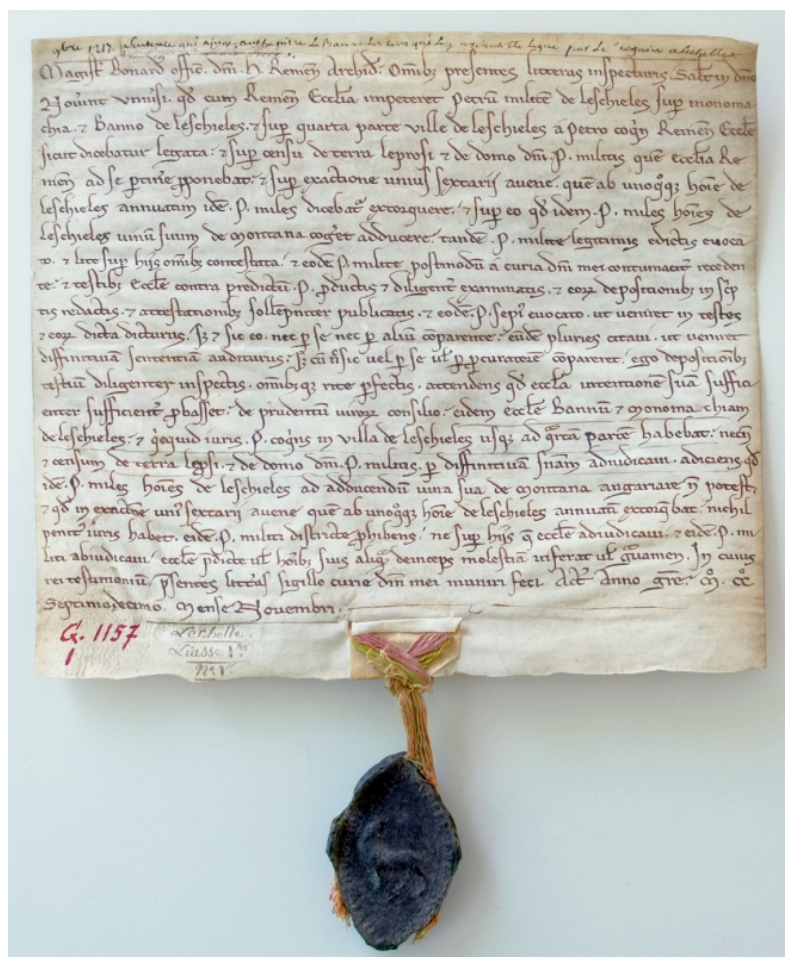 9bre 1217. Sentence qui ajuge au chapitre le Ban par le Coquin a Lechelle
Magist̃ Bonard᷒ offic̃. dñi. H. Remeñ Archid᷒. Omib᷒ presentes litteras inspecturis. Salt̃ in dño
Nouint vniũsi. qđ cum Remeñ Ecclia impeteret Petrũ militẽ de leschieles sup̃ monoma-
chia. ⁊ Banno de leschieles. ⁊ sup̃ quarta parte ville de leschieles a Petro coq̃n Remeñ Eccl̃e
sicut dicebatur legata: ⁊ sup̃ censu de terra leprosi ⁊ de domo dñi. P. militis quẽ eccl̃ia Re
meñ ad se p̃tinẽ p̃ponebat: ⁊ sup̃ exactione unius sextarij auene. quẽ ab unoq̊q̃ hoĩe de
leschieles annuatim idẽ. P. miles dicebat̃ extorquere: ⁊ sup̃ eo qđ idem. P. miles hoĩes de
leschieles uinũ suum de montana cog̃et adducere: tandẽ. P. milite legitimis edictis euoca
to. ⁊ lite sup̃ hijs omib᷒ contestata. ⁊ eodẽ P. milite postmodũ a curia dñi mei contumacit̃ receden
te: ⁊ testib᷒ Eccl̃e contra predictũ P. p̃ductis ⁊ diligent̃ examinatis. ⁊ eoꝝ depositionib᷒ in sc̃p
tis redactis. ⁊ attestationib᷒ sollẽpnit̃ publicatis. ⁊ eodẽ. P. sepĩ euocato. ut ueniret in testes
⁊ eoꝝ dicta dicturus. Sʒ ⁊ sic eo. nec p̱ se nec p̱ aliũ cõparente: eũdẽ pluries citaui. ut ueniret
diffinitiuã sententiã auditurus: Sʒ cũ nec sic uel p̱ se ul̃ p̱ p̃curatorẽ cõpareret. ego depositionib᷒
testiũ diligenter inspectis. omib᷒q̃ rite p̱fectis. attendens qđ eccl̃a intentionẽ suã suffici
enter sufficient̃ p̃basset: de prudentũ uiroꝝ consilio. eidem eccl̃e Bannũ ⁊ monoma chiam
de leschieles: ⁊ q̊cquid iuris. P. coq̃ns in villa de leschieles usq̃ ad q̃rtã partẽ habebat: necñ
⁊ censum de terra lep̃si. ⁊ de domo dñi. P. militis. p̱ diffinitiuã sñiam adiudicaui. adiciens qđ
idẽ. P. miles hoĩes de leschieles ad adducendũ uina sua de montana angariare ñ potest:
⁊ qđ in exactiõe uni᷒ sextarij auene quẽ ab unoq̊q̃ hoĩe de leschieles annuatĩ extorq̃bat. nichil
penit᷒ iuris habet. eidẽ. P. militi districte p̃hibens: ne sup̃ hijs q̃ eccl̃e adiudicaui. ⁊ eidẽ. P. mi
liti abiudicaui. eccl̃e p̃dicte ul̃ hoĩb᷒ suis aliq̃m deinceps molestiã inferat ul̃ g̃uamen. In cuius
rei testimoniũ p̃sentes litt̃as sigillo curie dñi mei muniri feci. Act̃. Anno gr̃e: M̊. C̊C̊.
Septimodecimo. Mense Nouembri.
G. 1157
1
Lechelle.
Liasse 1re
No. 1r.